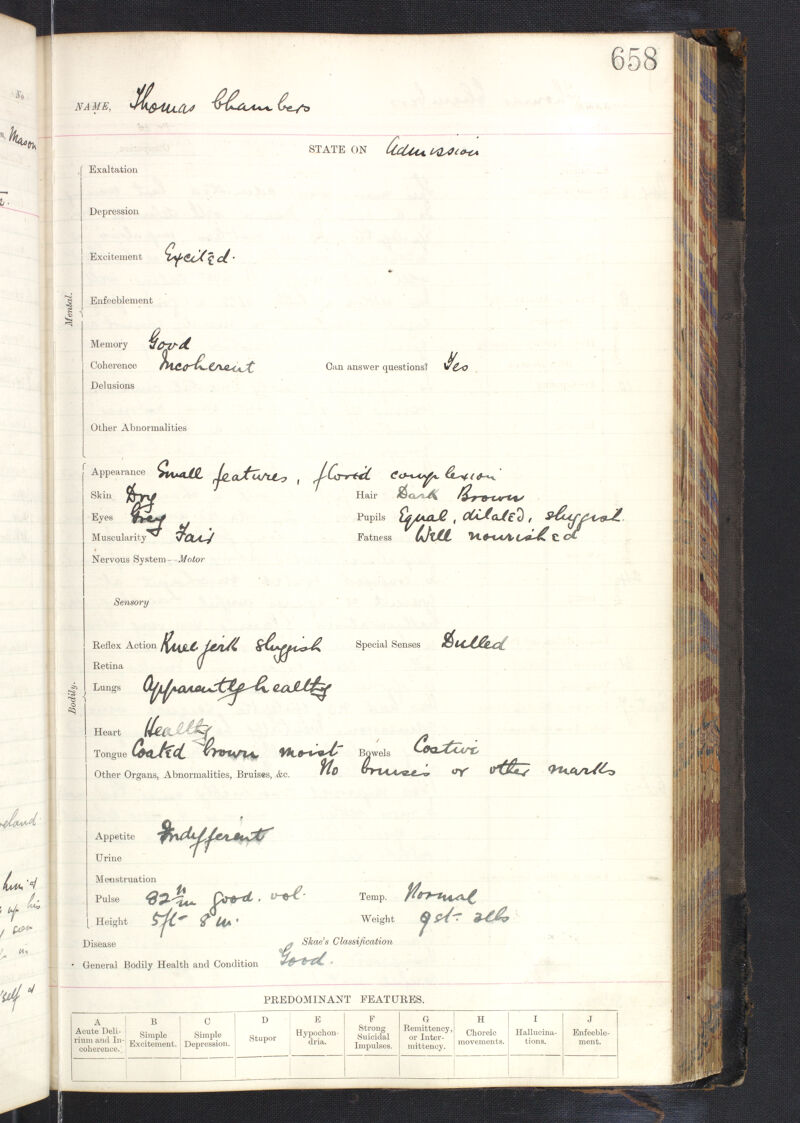 658
No
Mason
NAME, Thomas Chambers
STATE ON Admission
Mental.
Exaltation
Depression
Excitement Excited.
Enfeeblement
Memory Good
Coherence Incoherent Can answer questions? Yes
Delusions
Other Abnormalities
Bodily.
Appearance Small features, florid complexion
Skin Dry Hair Dark Brown
Eyes Grey Pupils Equal, dilated, sluggish.
Muscularity Fair Fatness Well nourished
Nervous System—Motor
Sensory
Reflex Action Knee jerk sluggish Special Senses Dulled
Retina
Lungs Apparently healthy
Heart Healthy
Tongue Coated brown moist Bowels Costive
Other Organs, Abnormalities, Bruises, &c. No bruises or other marks
Appetite Indifferent
Urine
Menstruation
Pulse 82 good. vol. Temp. Normal
Height 5ft 8 in. Weight 9st. 2lbs
Disease Skae's Classification
General Bodily Health and Condition Good.
PREDOMINANT FEATURES.
A B C D E F G H I J
Acute Deli-rium and In-coherence. Simple Excitement. Simple Depression. Stupor Hypochon-dria. Strong Suicidal Impulses. Remittency, or Inter-mittency. Choreic movements. Hallucina-tions. Enfeeble-ment.
him
up his